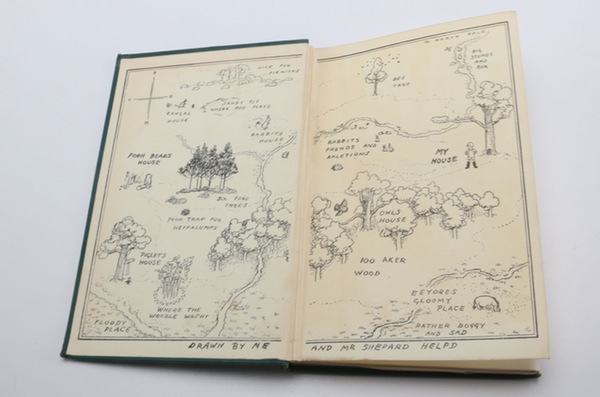 NICE FOR
PICNICKS
P
SANDY PIT
WHERE ROO PLAYS
KANGAS
HOUSE
RABBITS
HOUSE
POOH BEARS
HOUSE
SIX PINE
TREES
POOH TRAP FOR
HEFFALUMPS
PIGLETS
HOUSE
WHERE THE
WOOZLE WASNT
FLOODY
PLACE
DRAWN BY ME
TO NORTH POLE
BIG
STONES
AND
ROX
BEE
TREE
RABBITS
FRENDS AND
RALETIONS
MY
HOUSE
OWLS
HOUSE
100 AKER
WOOD
EEYORES
GLOOMY
PLACE
RATHER BOGGY
AND SAD
AND MR SHEPARD HELPD